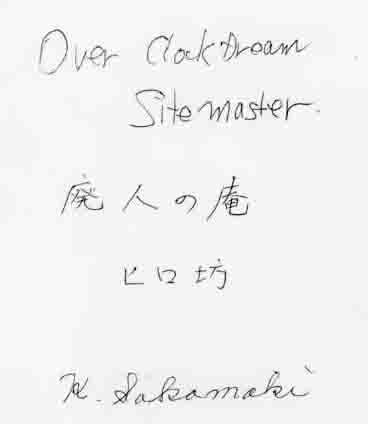 Over Clock Dream
Sitemaster.
廃人の庵
ヒロ坊
K. Sakamaki